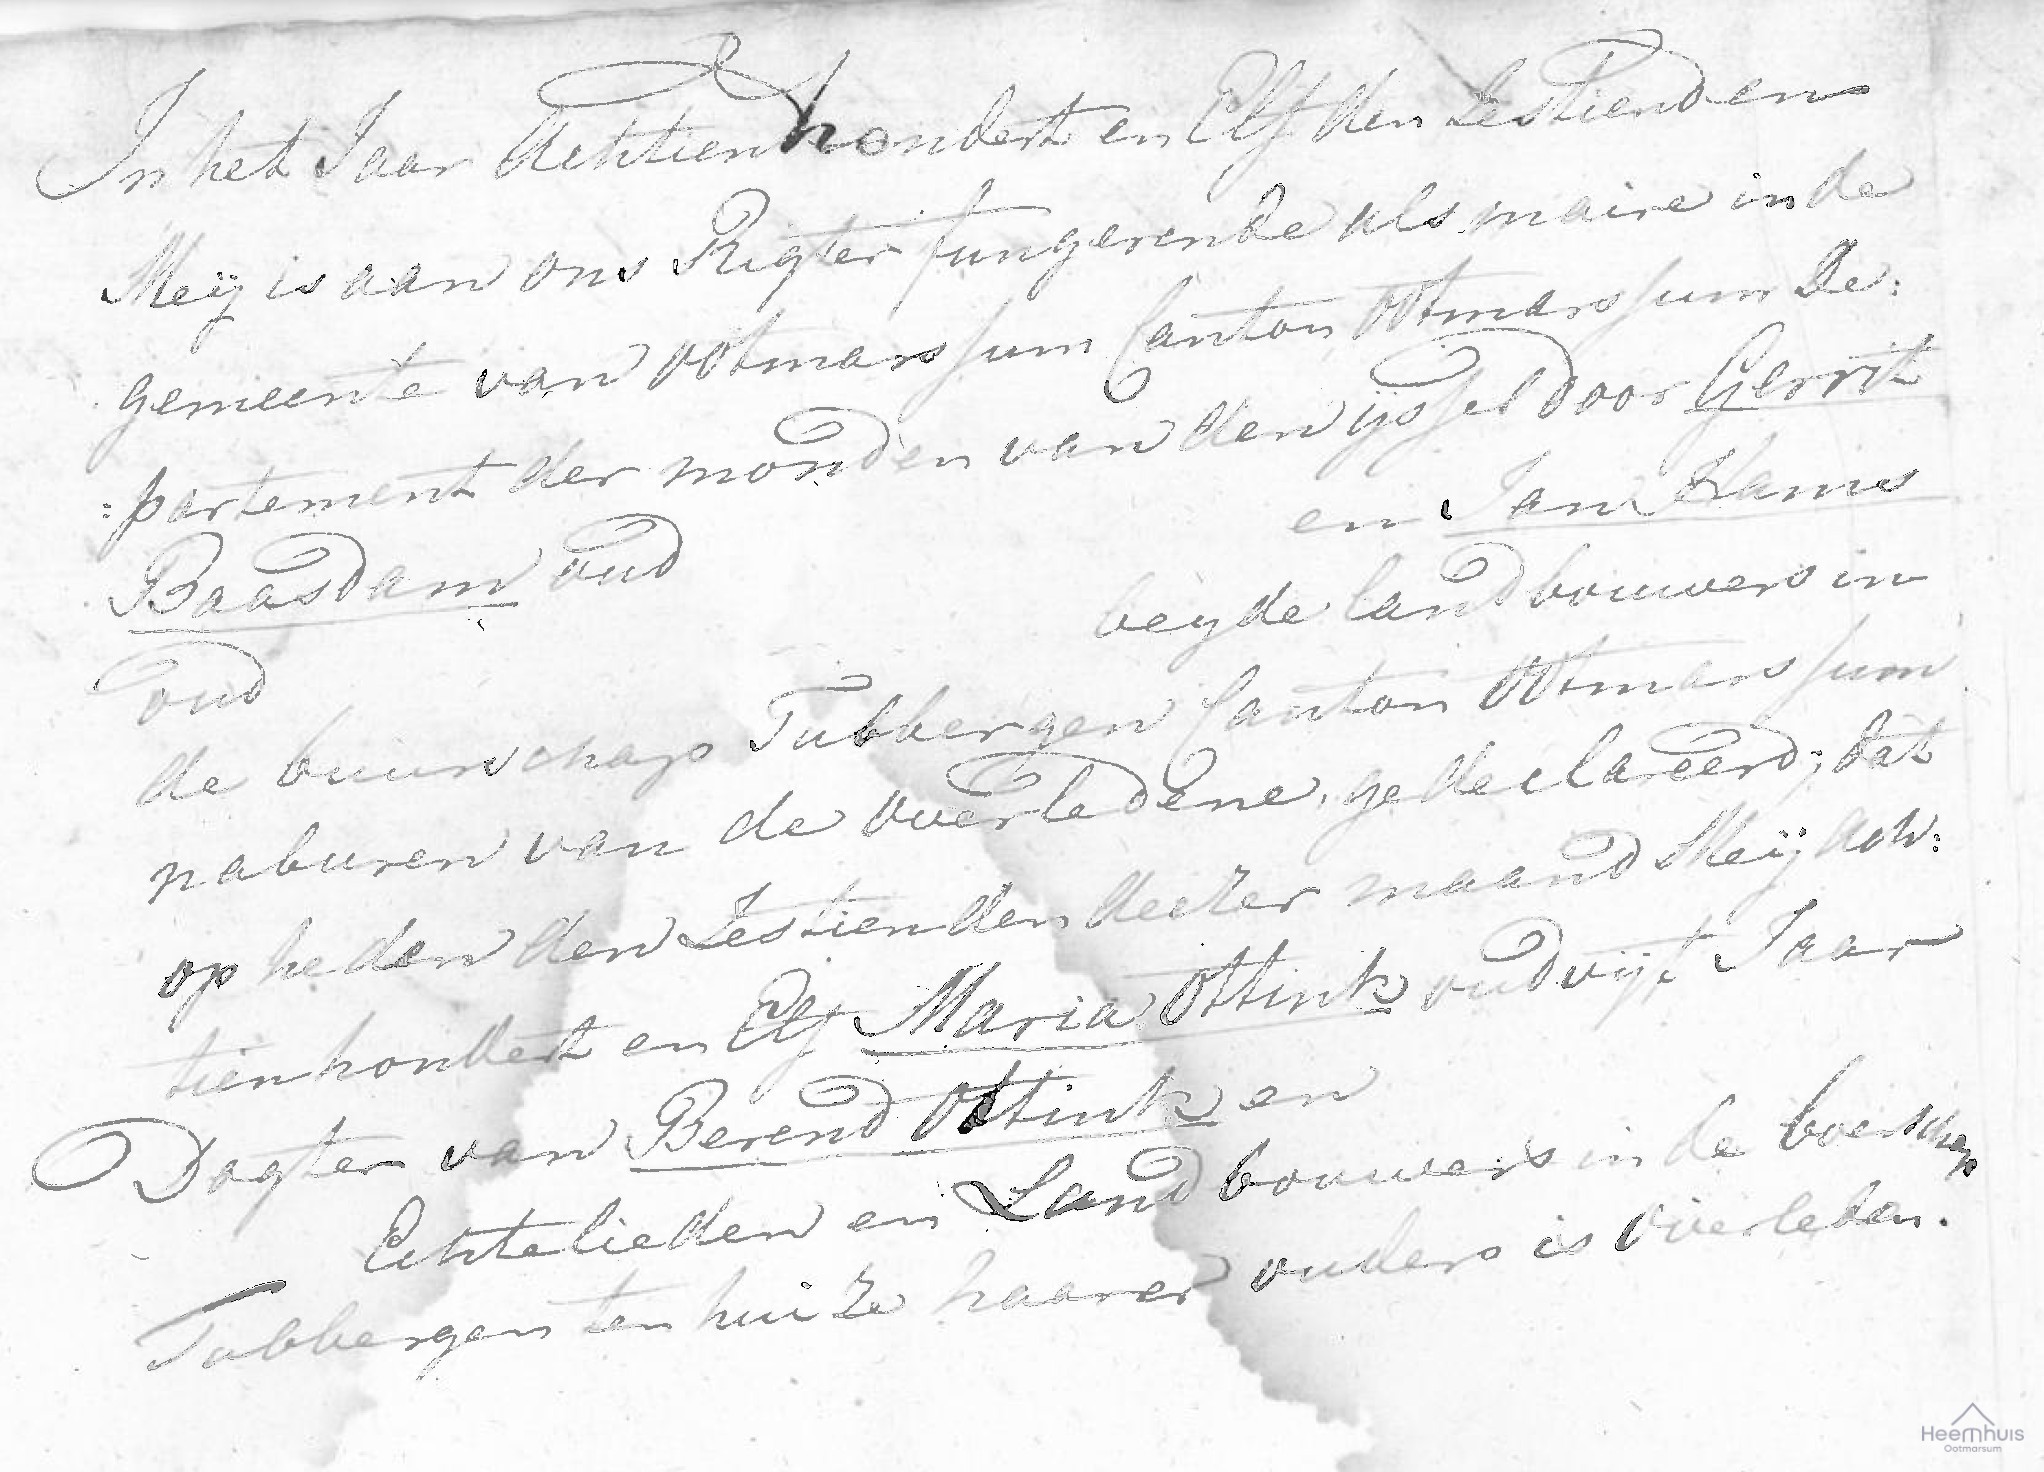 In het Jaar Achtienhondert en Elf den Zestienden
Meij is aan ons Rigter fungerende als maire in de
gemeente van Ootmarssum Canton Ootmarssum De:
:partement der monden van den ijssel door Gerrit
Baasdam oud en Jan Harms
oud beyde landbouwers in
de buurschap Tubbergen Canton Ootmarssum
naburen van de overledene, gedeclareerd; dat
op heden den Zestienden deezer maand Meij ach:
tienhondert en Elf Maria Ottink oud vijf Jaar
Dogter van Berend Ottink en
Echtelieden en Landbouwers in de boerschap
Tubbergen ten huize haarer ouders is overleden.
Heemhuis
Ootmarsum